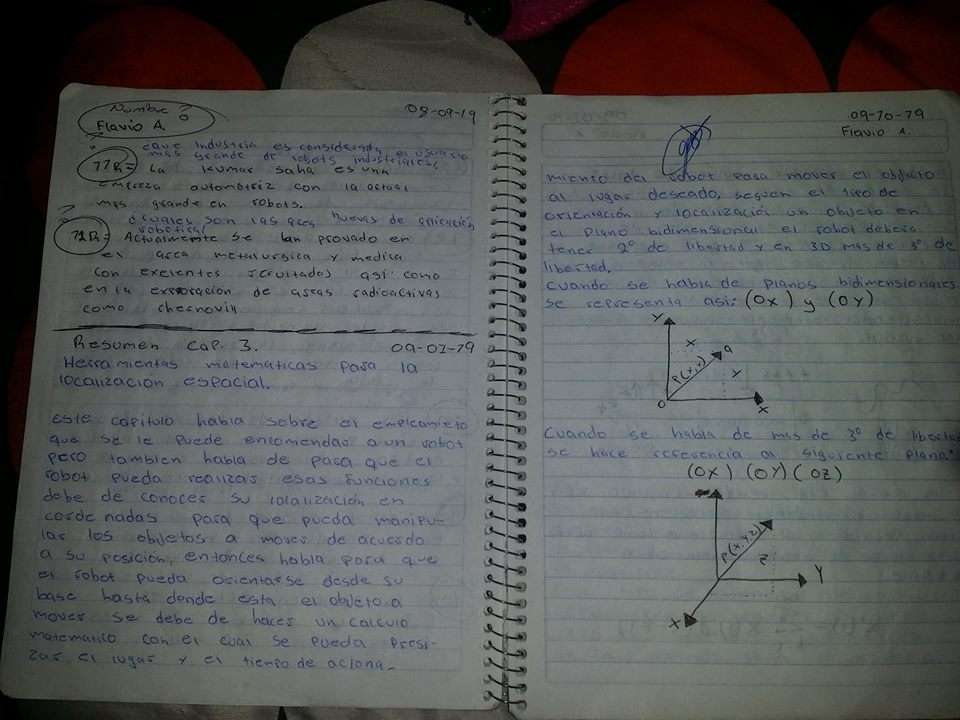 Nombre o
Flavio A.
08-09-19
¿que industria es considerada el usuario
mas grande de robots industriales?
11R= La kumar saha es una
empreza automotriz con la actual
mas grande en robots.
¿cuales son las ares nuevas de aplicación
robotica?
12R= Actualmente se han provado en
el area metalurgica y medica
con exelentes resultados asi como
en la exporacion de areas radioactivas
como chernovil
Resumen Cap. 3. 09-07-19
Herramientas matematicas para la
localización espacial.
Este capitulo habla sobre el empleamieto
que se le puede encomendar a un robot
pero tambien habla de para que el
robot pueda realizar esas funciones
debe de conocer su localización en
cordenadas para que pueda manipu-
lar los objetos a mover de acuerdo
a su posición, entonces habla para que
el robot pueda orientarse desde su
base hasta donde esta el objeto a
mover se debe de hacer un calculo
matematico con el cual se pueda presi-
zar el lugar y el tiempo de aciona-
09-10-19
Flavio A.
miento del robot para mover el objeto
al lugar deseado, seguen el tipo de
orientación y localización un objeto en
el plano bidimensional el robot debera
tener 2° de libertad y en 3D mas de 3° de
libertad.
Cuando se habla de planos bidimensionales
se representa asi: (OX) y (OY)
Y
x
a
P(x,y)
y
O
X
Cuando se habla de mas de 3° de libertad
se hace referencia al siguiente plano:
(OX) (OY) (OZ)
P(x,y,z)
z
Y
X